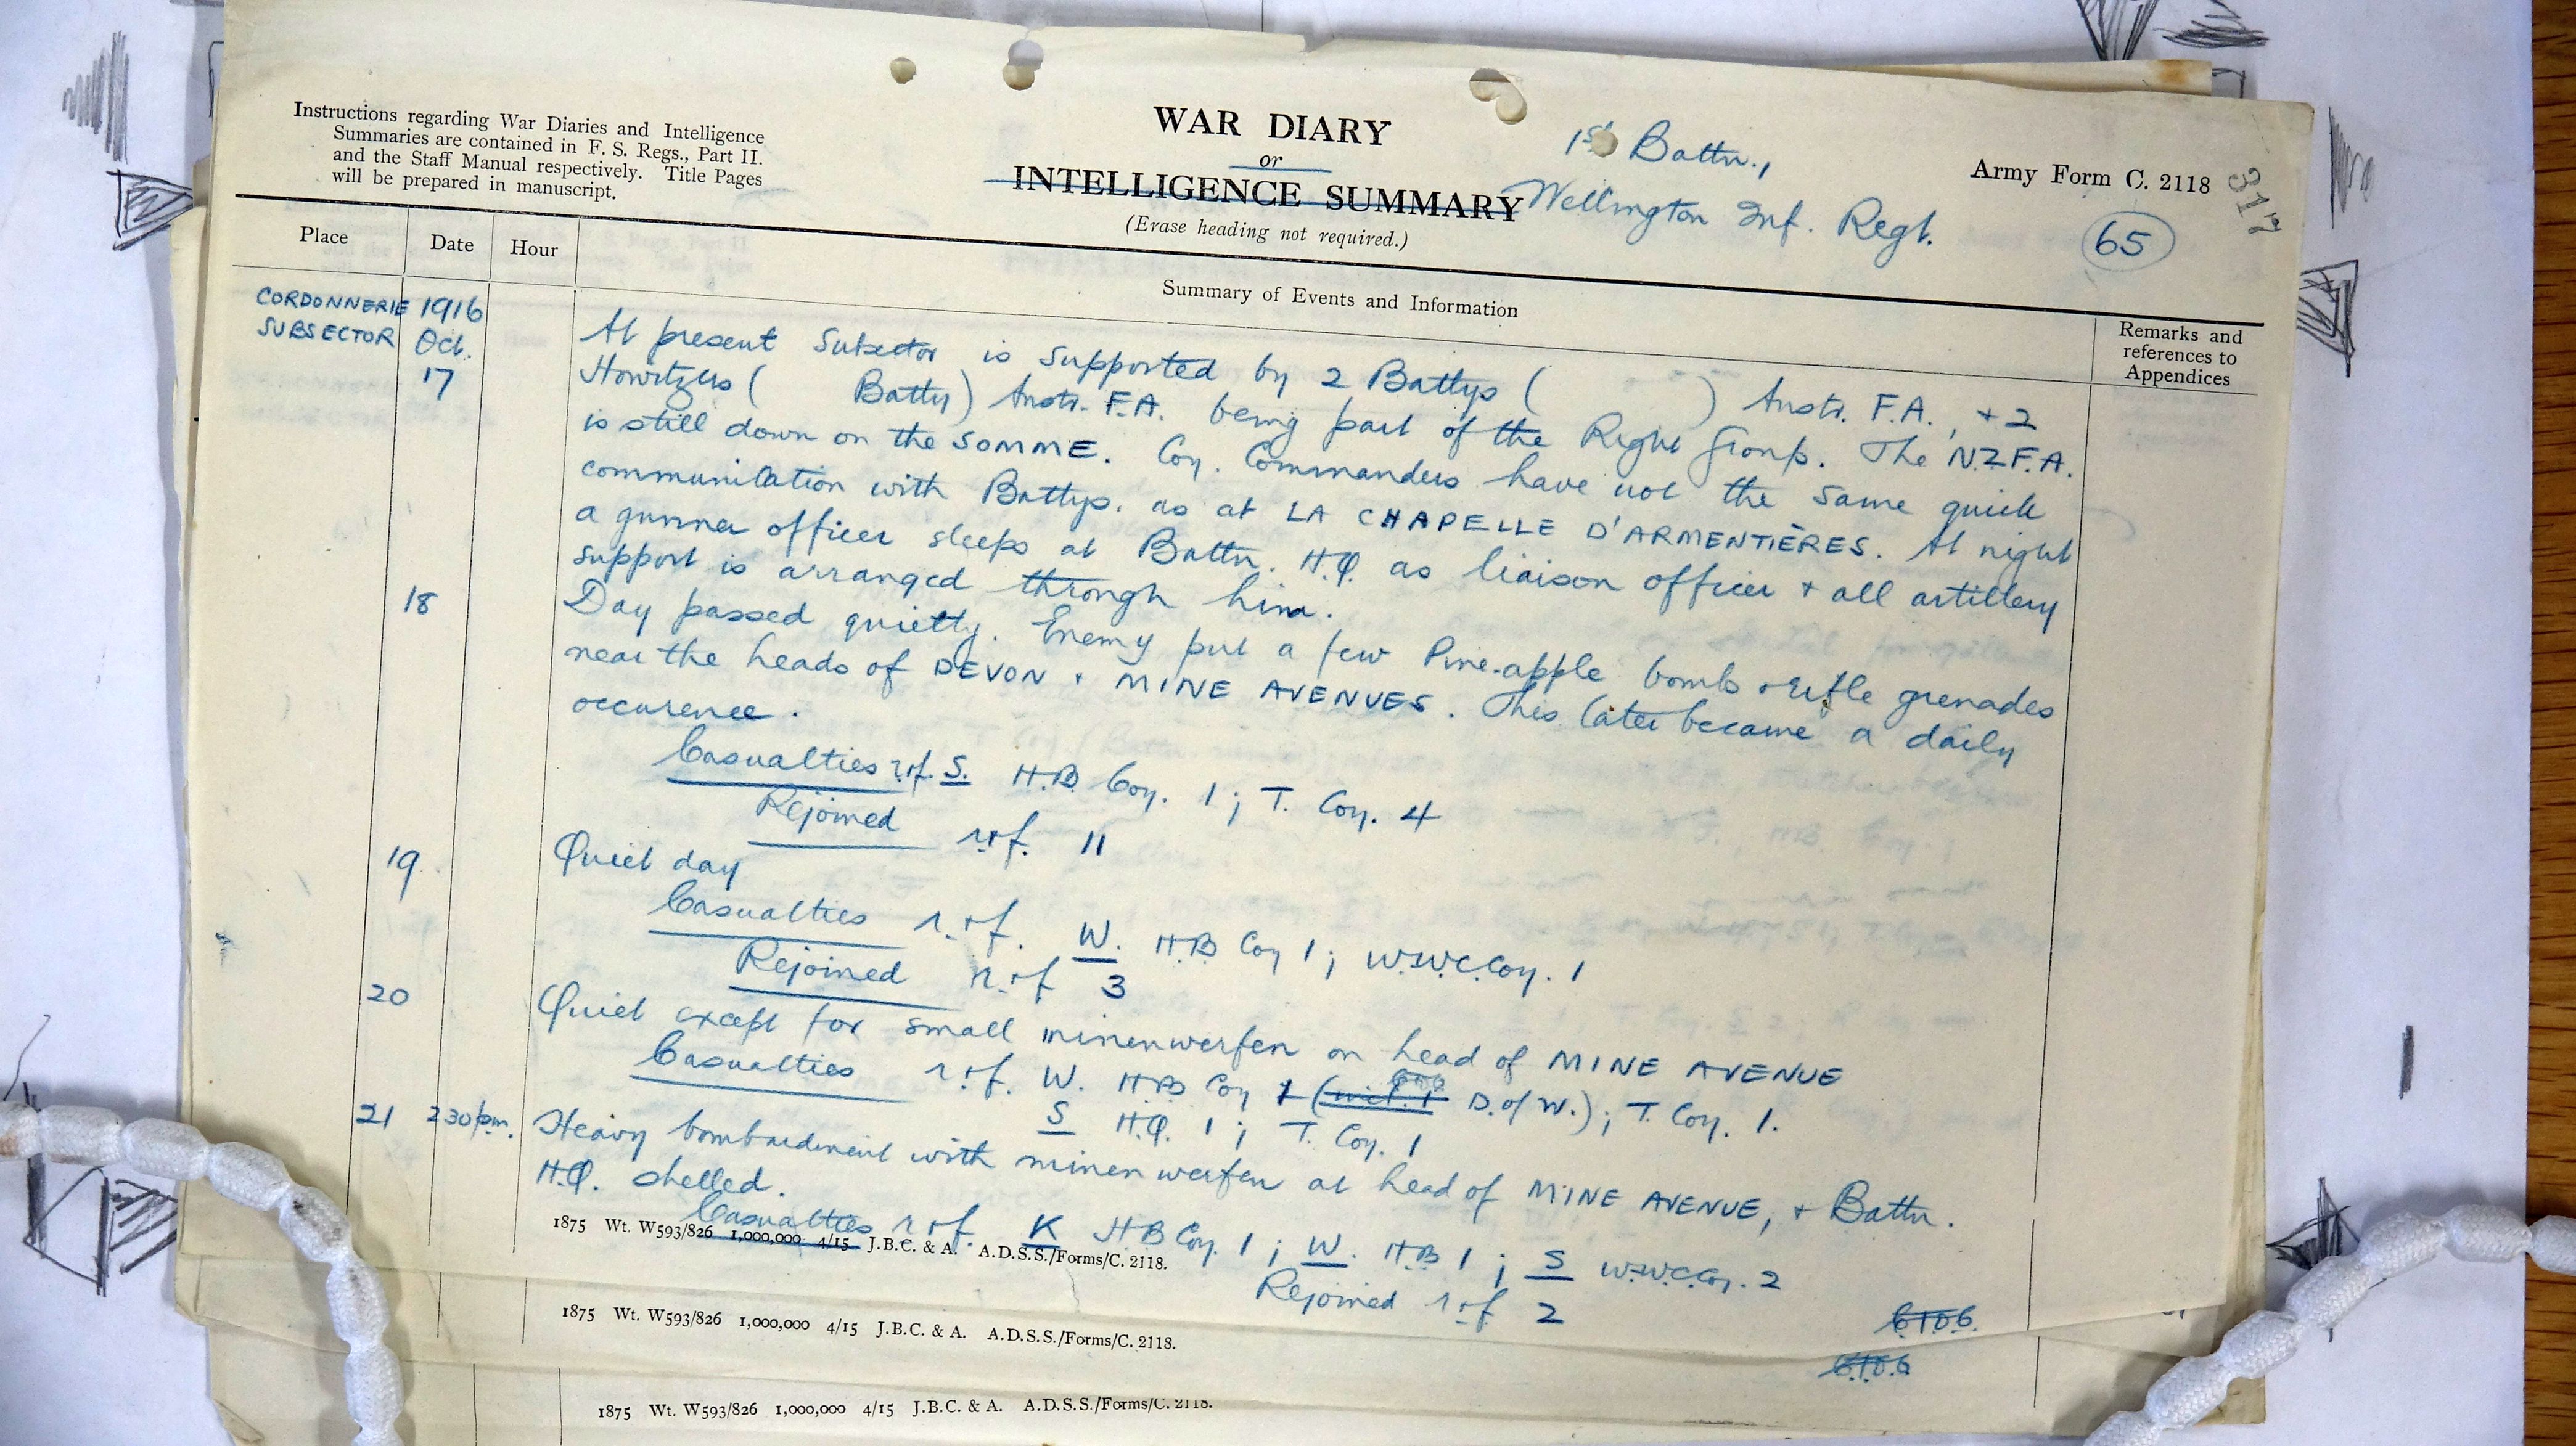 Instructions regarding War Diaries and Intelligence
Summaries are contained in F. S. Regs., Part II.
and the Staff Manual respectively. Title Pages
will be prepared in manuscript.
WAR DIARY
or
INTELLIGENCE SUMMARY
(Erase heading not required.)
1st Battn.,
Wellington Inf. Regt.
Army Form C. 2118
317
65
Place Date Hour Summary of Events and Information Remarks and
references to
Appendices
CORDONNERIE 1916
SUBSECTOR Oct.
17 At present Subsector is supported by 2 Battys ( ) Austr. F.A., + 2
Howitzers ( Batty) Austr. F.A. being part of the Right Group. The N.Z.F.A.
is still down on the SOMME. Coy. Commanders have not the same quick
communication with Battys. as at LA CHAPELLE D'ARMENTIÈRES. At night
a gunner officer sleeps at Battn. H.Q. as liaison officer + all artillery
support is arranged through him.
18 Day passed quietly. Enemy put a few Pine-apple bombs + rifle grenades
near the heads of DEVON + MINE AVENUES. This later became a daily
occurence.
Casualties r.+f. S. H.B. Coy. 1; T. Coy. 4
Rejoined r.+f. 11
19 Quiet day
Casualties r.+f. W. H.B Coy 1; W.W.C.Coy. 1
Rejoined r.+f 3
20 Quiet except for small minenwerfen on head of MINE AVENUE
Casualties r.+f. W. H.B Coy 1 ( D. of W.); T. Coy. 1.
S H.Q. 1; T. Coy. 1
21 2 30 pm. Heavy bombardment with minenwerfen at head of MINE AVENUE, + Battn.
H.Q. shelled.
Casualties r.+f. K H B Coy. 1; W. H.B 1; S W.W.C.Coy. 2
Rejoined r.+f 2
1875 Wt. W593/826 1,000,000 4/15 J.B.C. & A. A.D.S.S./Forms/C. 2118.
1875 Wt. W593/826 1,000,000 4/15 J.B.C. & A. A.D.S.S./Forms/C. 2118.
1875 Wt. W593/826 1,000,000 4/15 J.B.C. & A. A.D.S.S./Forms/C. 2118.